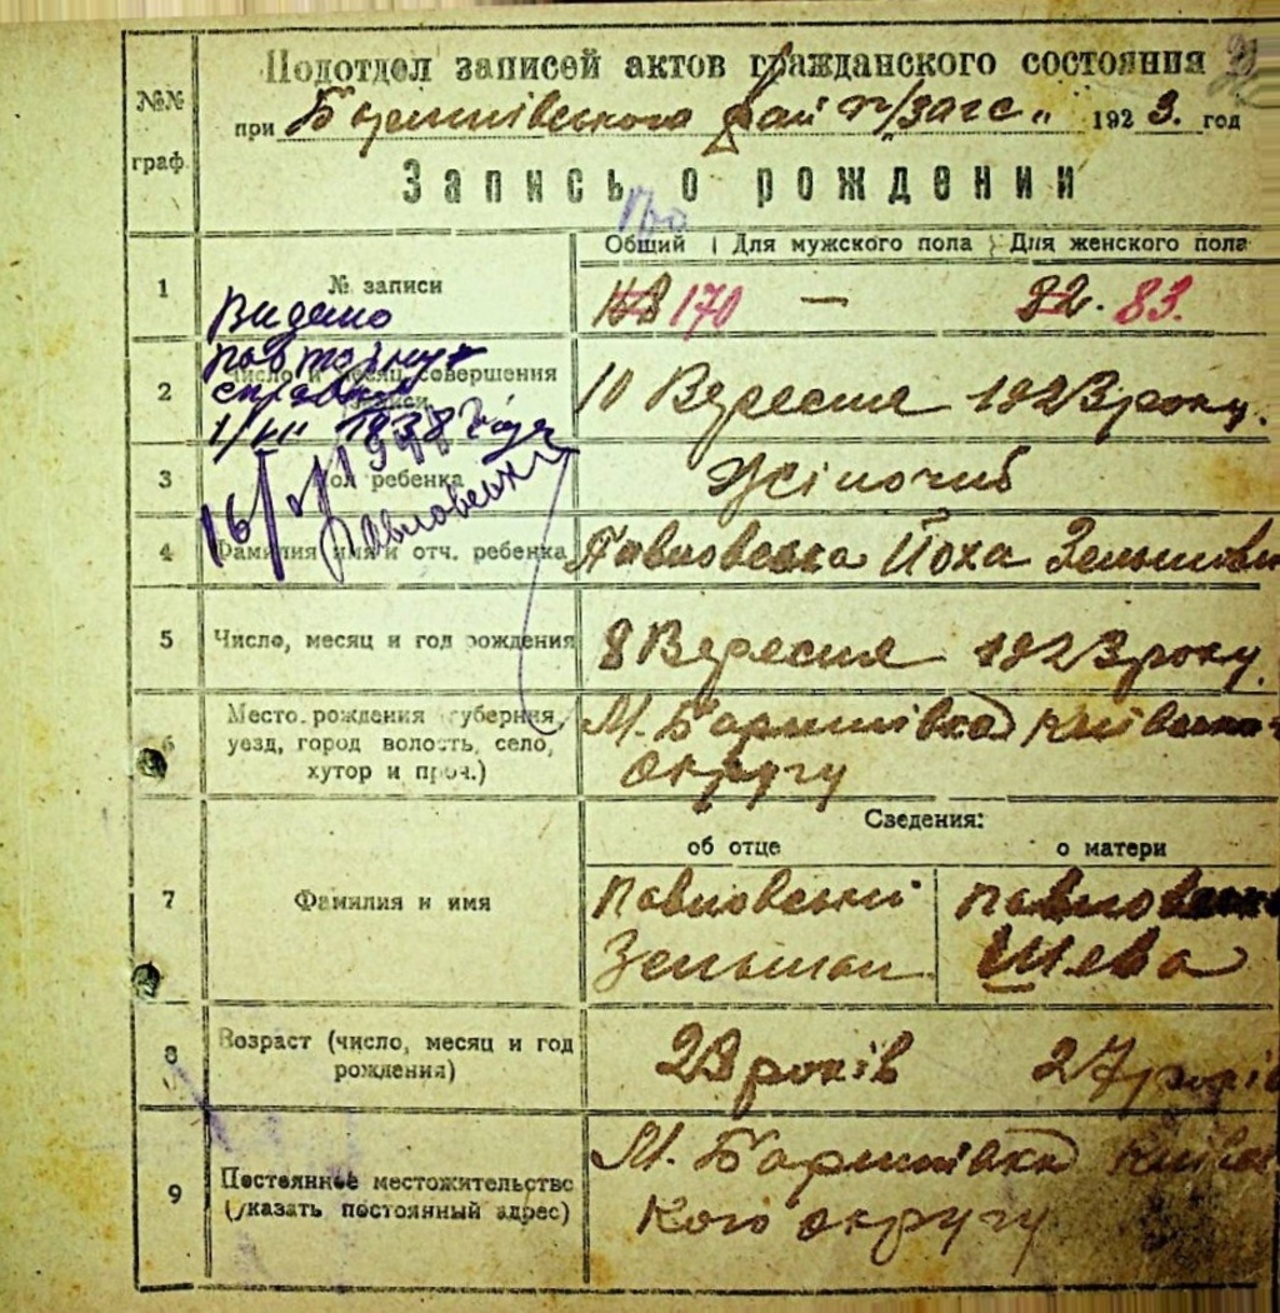 №№ граф.
Подотдел записей актов гражданского состояния
при Баришівського рай п/загс" 1923. год
Запись о рождении
Общий | Для мужского пола | Для женского пола
1 № записи 170 — 22. 83.
Видано
повторну
справку
1/VII 1938 года
2 Число и месяц совершения записи 10 Вересня 1923 року.
3 Пол ребенка Жіночиб
16/
Павловський
4 Фамилия имя и отч. ребенка Павловська Йоха Зельмовн
5 Число, месяц и год рождения 8 Вересня 1923 року.
6 Место рождения (губерния, М. Баришівка Київсько-
уезд, город волость, село, округу
хутор и проч.)
Сведения:
об отце о матери
7 Фамилия и имя Павловськи Павловська
Зельман Шева
8 Возраст (число, месяц и год 28 років 27 років
рождения)
9 Постоянное местожительство М. Баришівка Київсь
(указать постоянный адрес) кого округу